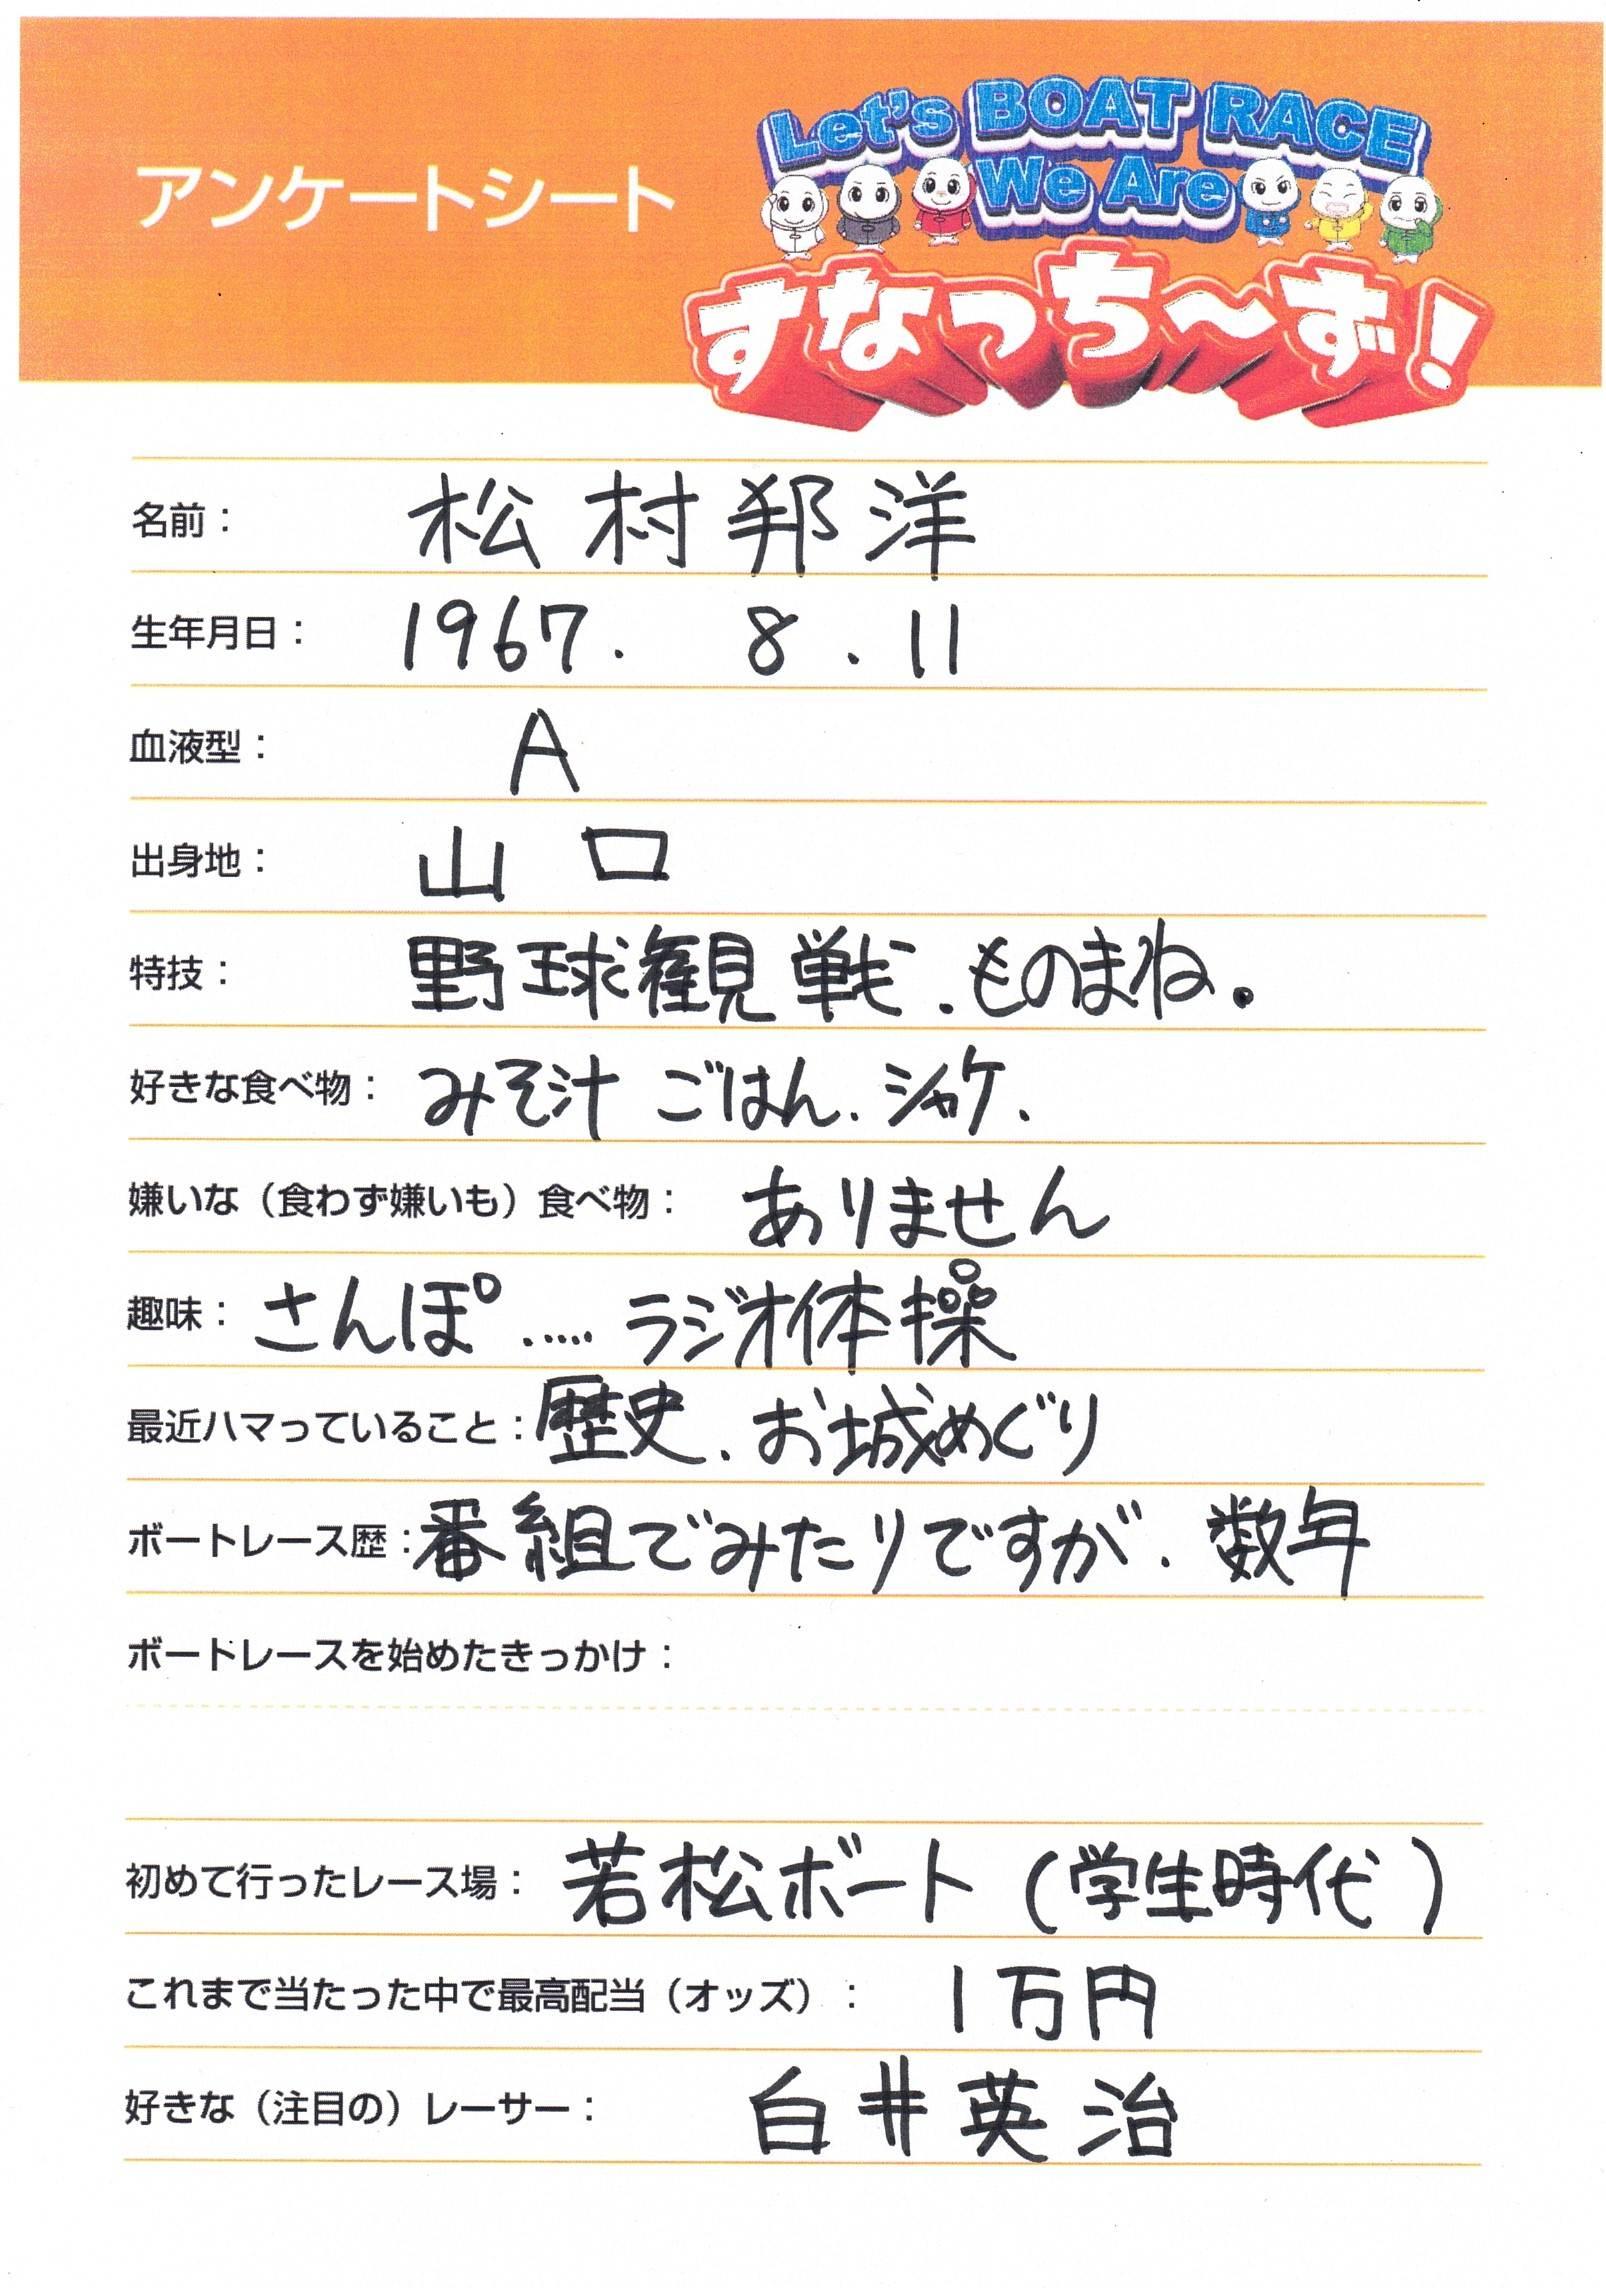 アンケートシート
Let's BOAT RACE
We Are
すなっち〜ず!
名前： 松村邦洋
生年月日： 1967. 8. 11
血液型： A
出身地： 山口
特技： 野球観戦.ものまね。
好きな食べ物： みそ汁 ごはん.シャケ.
嫌いな（食わず嫌いも）食べ物： ありません
趣味： さんぽ ..... ラジオ体操
最近ハマっていること： 歴史.お城めぐり
ボートレース歴： 番組でみたりですが.数年
ボートレースを始めたきっかけ：
初めて行ったレース場： 若松ボート (学生時代)
これまで当たった中で最高配当（オッズ）： 1万円
好きな（注目の）レーサー： 白井英治